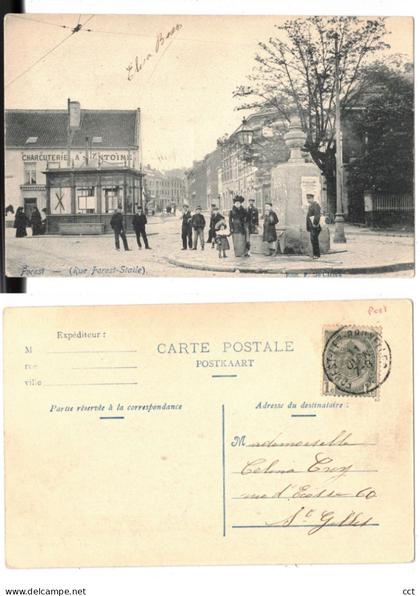 CHARCUTERIE A ST ANTOINE
Forest — (Rue Forest-Stalle)
Post
Expéditeur :
M
rue
ville
CARTE POSTALE
POSTKAART
Partie réservée à la correspondance
Adresse du destinataire :
Mademoiselle
Celina Croy
rue d'Ecosse 60
St Gilles
cct